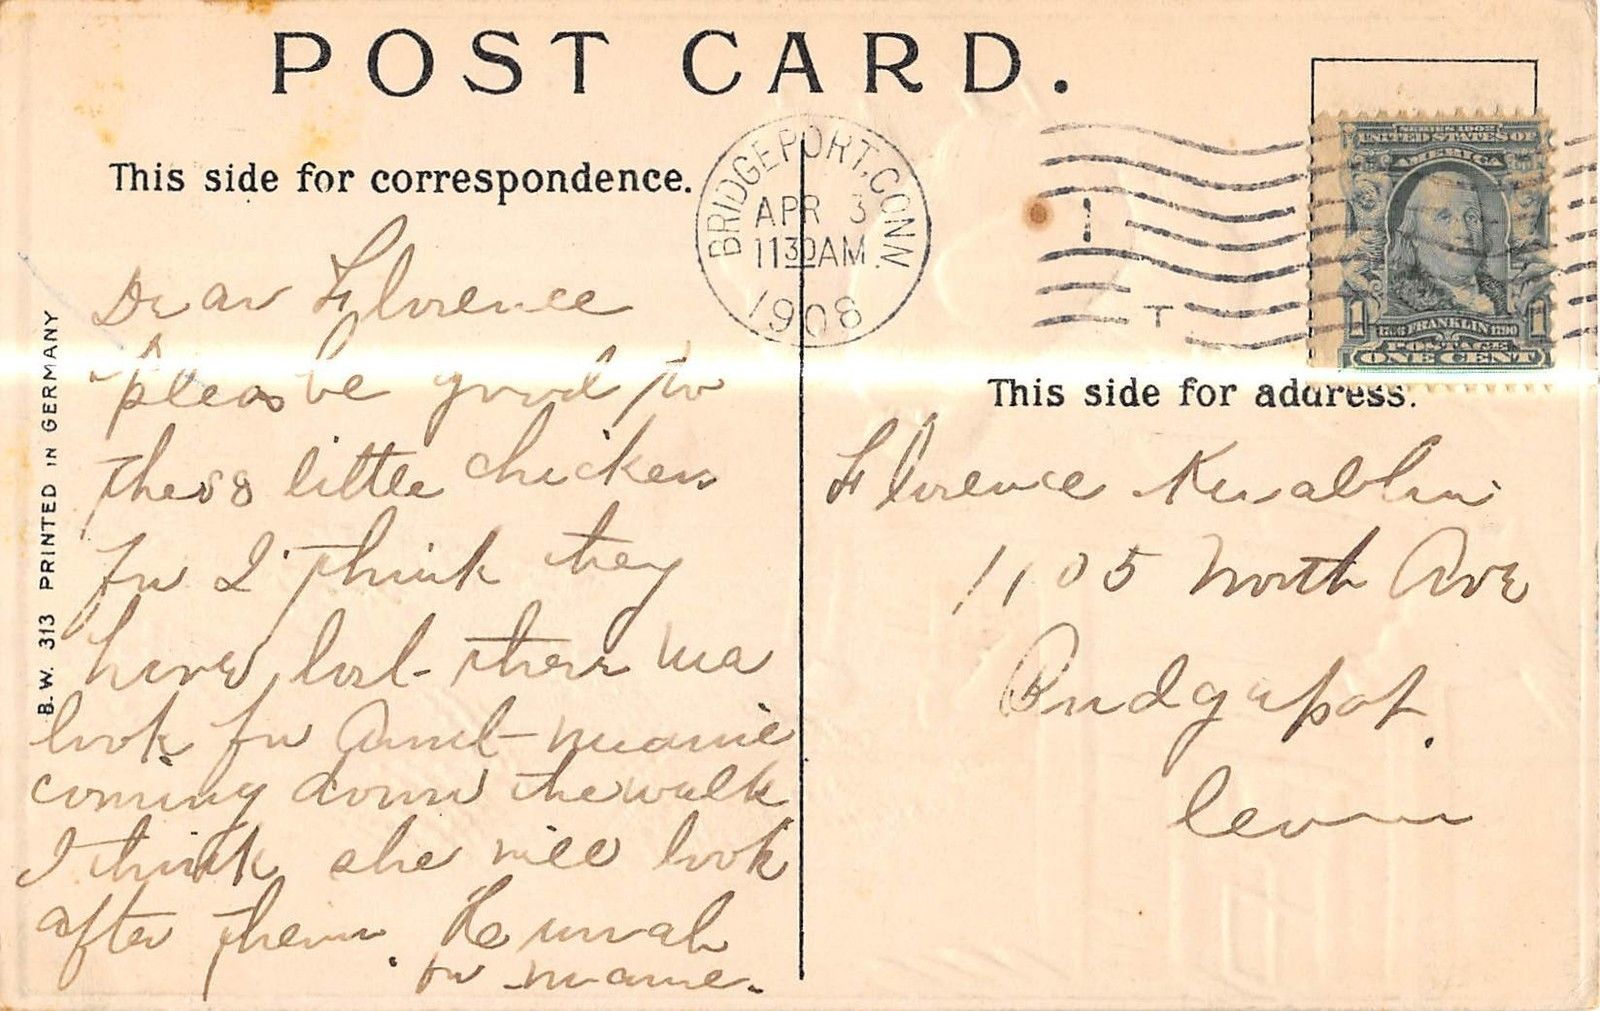 POST CARD.
This side for correspondence.
BRIDGEPORT, CONN.
APR 3
1130AM
1908
1
T
SERIES 1902
UNITED STATES OF
AMERICA
1706 FRANKLIN 1790
POSTAGE
1 1
ONE CENT
Dear Florence
Please be good to
these 8 little chickens
for I think they
have lost there ma
look for Aunt mamie
coming down the walk
I think she will look
after them.
for mamie.
B.W. 313 PRINTED IN GERMANY
This side for address.
Florence
1105 North Ave
Bridgeport.
Conn